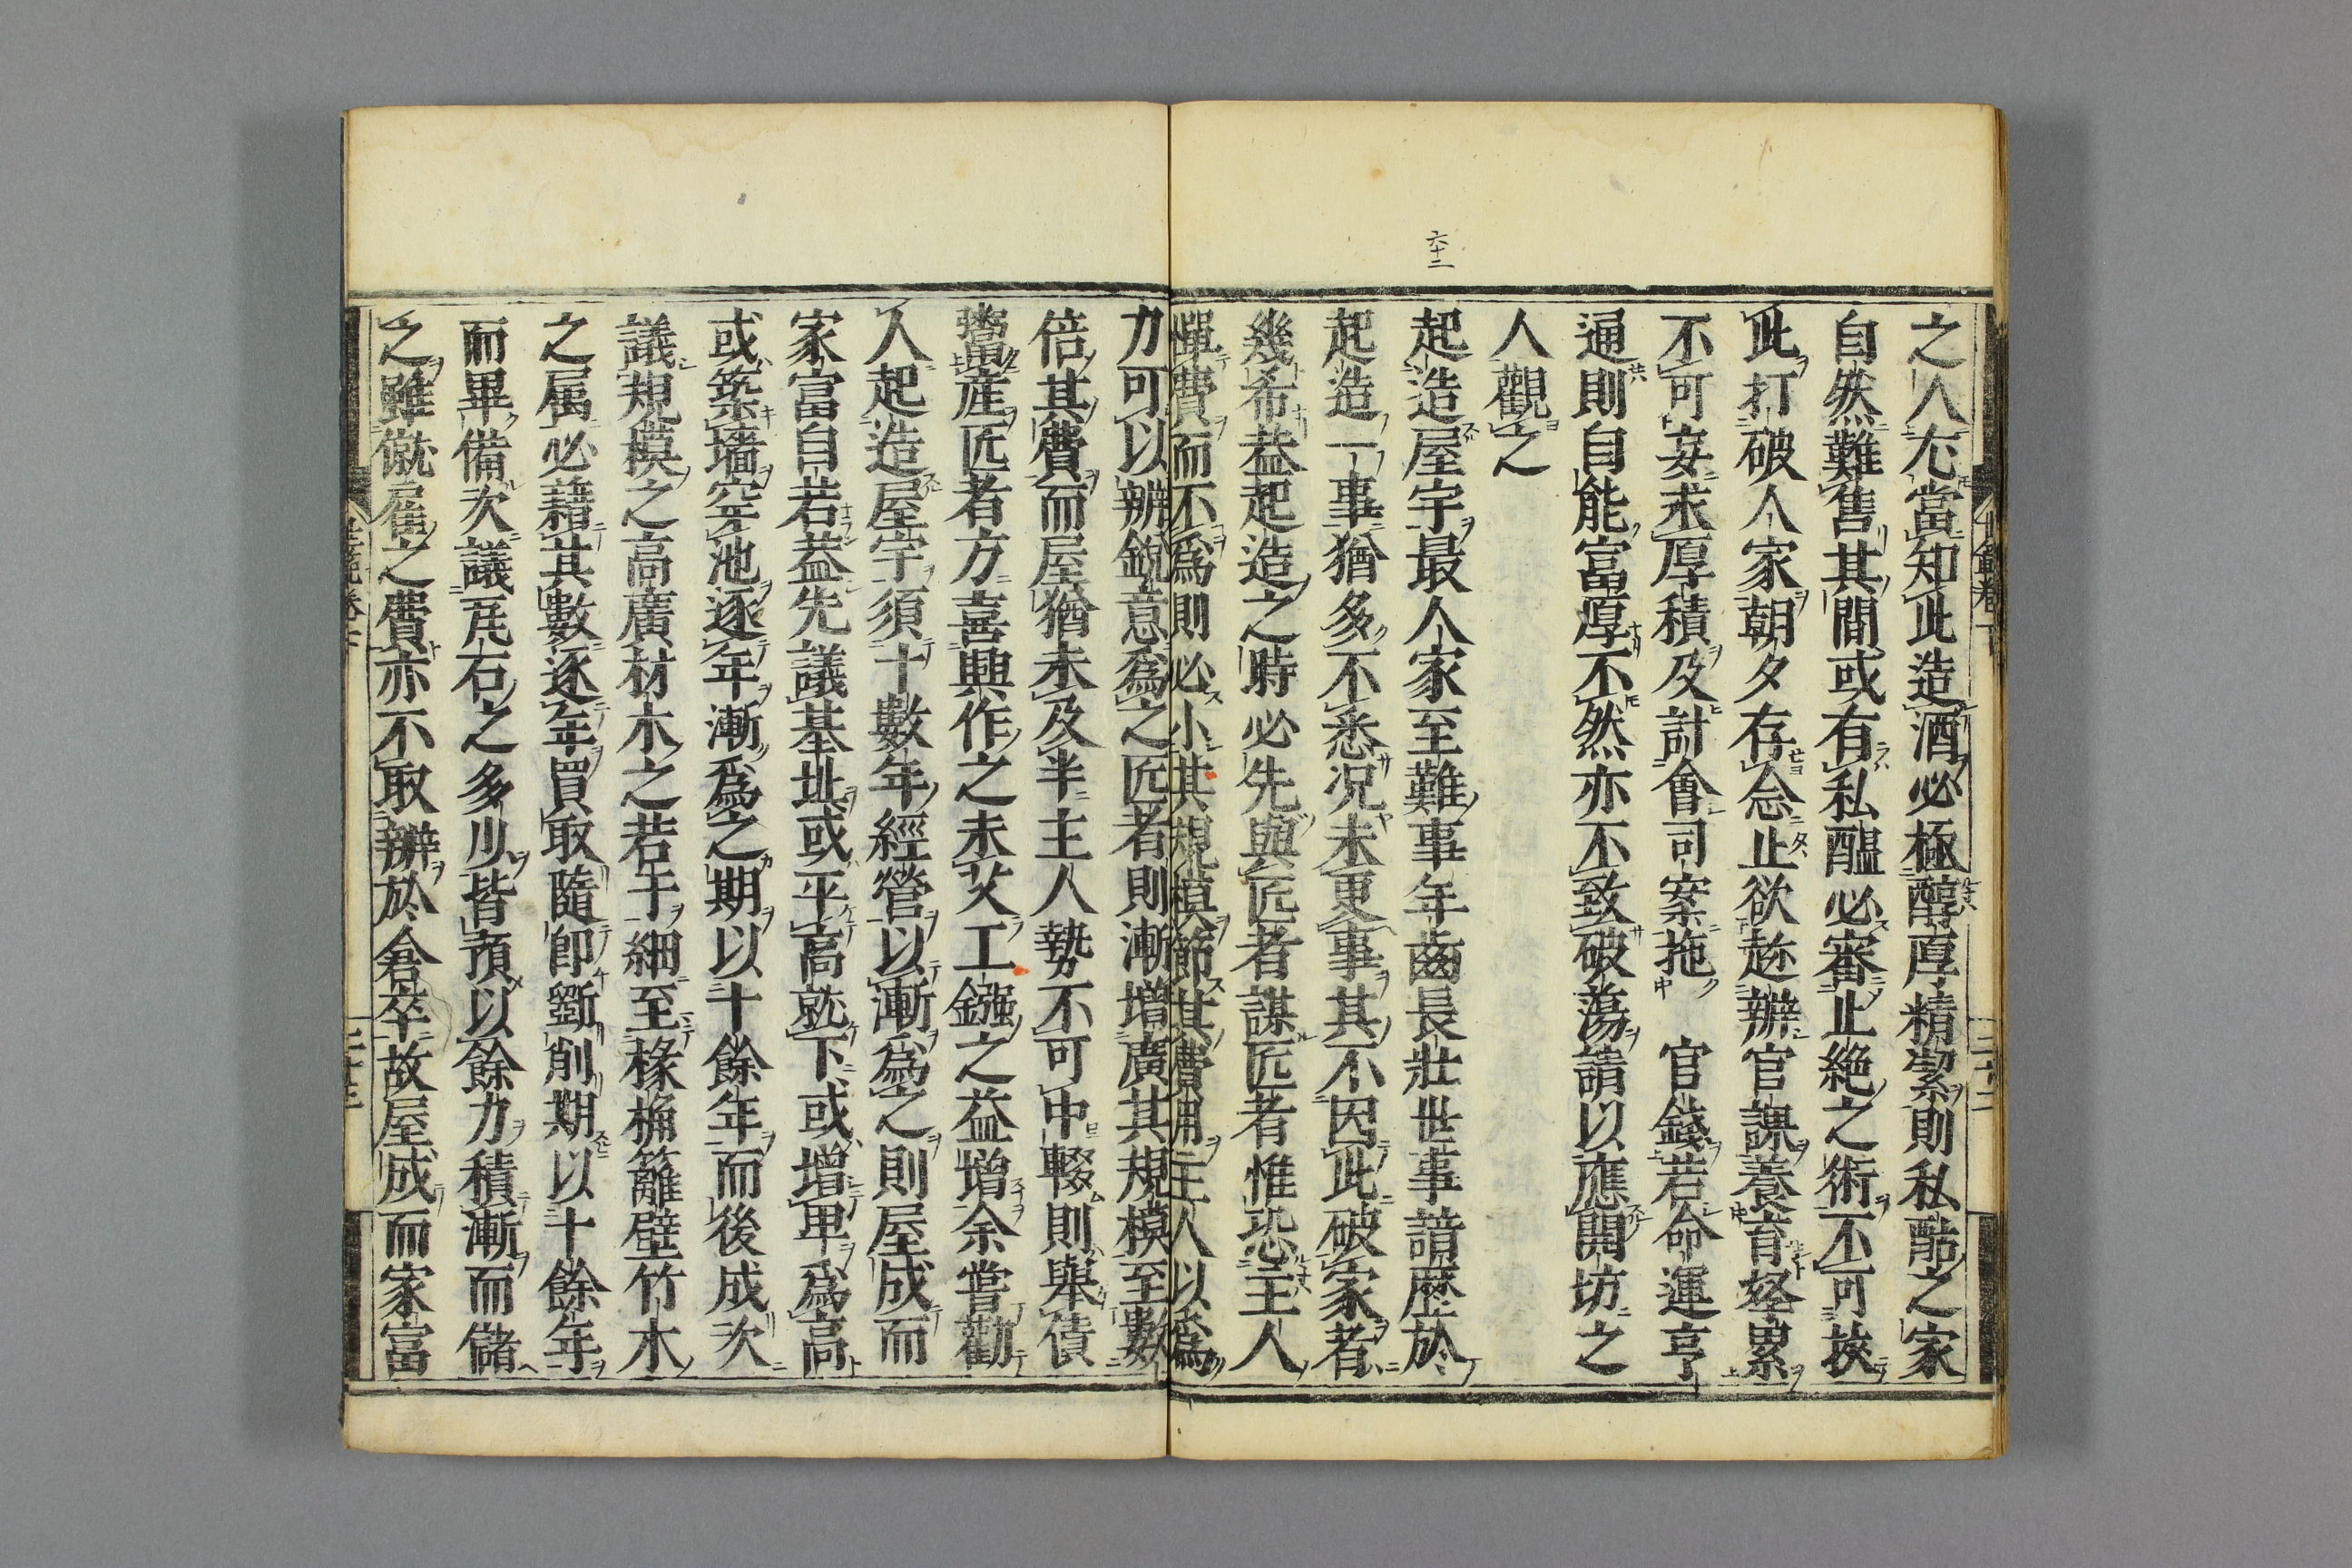 六十二
之人尤當知此造酒必極醇厚精潔則私酤之家
自然難售其間或有私醞必審止絶之術不可挾
此打破人家朝夕存念止欲趂辨官課養育孥累
不可妄求厚積及計會司案拖 官錢若命運亨
通則自能富厚不然亦不致破蕩請以應開坊之
人觀之
起造屋宇最人家至難事年齒長壯世事諳歴於
起造一事猶多不悉况未更事其不因此破家者
幾希葢起造之時必先與匠者謀匠者惟恐主人
憚費而不爲則必小其規模節其費用主人以爲
力可以辨銳意爲之匠者則漸增廣其規模至數
倍其費而屋猶未及半主人勢不可中輟則舉債
鬻産匠者方喜興作之未艾工鏹之益增余嘗勸
人起造屋宇須十數年經營以漸爲之則屋成而
家富自若葢先議基址或平高就下或增卑爲高
或築墻穿池逐年漸爲之期以十餘年而後成次
議規模之高廣材木之若干細至椽桷籬壁竹木
之屬必藉其數逐年買取隨卽斲削期以十餘年
而畢備次議瓦石之多少皆預以餘力積漸而儲
之雖僦雇之費亦不取辨於倉卒故屋成而家富
世範卷下
三十二